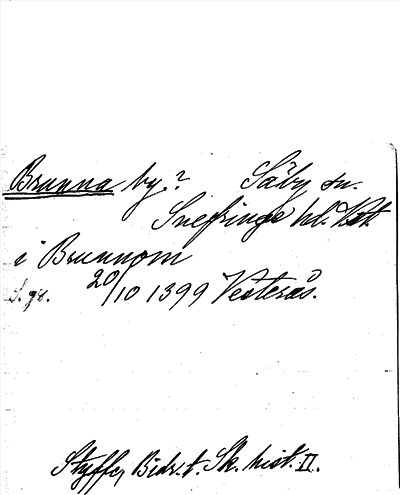 Brunna by? Säby sn.
Snefringe hd. Vst.
i Brunnom
S. 98. 20/10 1399 Vesterås.
Styffe, Bidr. t. Sk. hist. II.